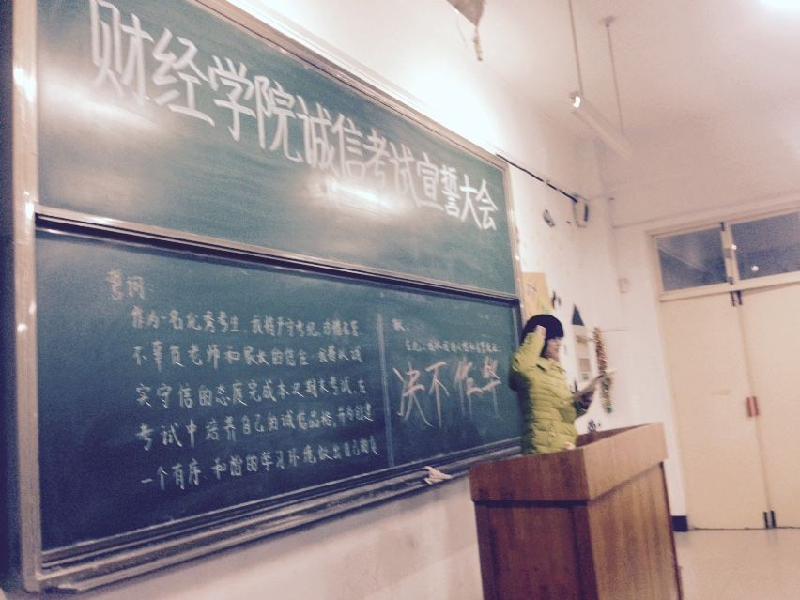 财经学院诚信考试宣誓大会
誓词
作为一名优秀考生,我将严守考纪,
不辜负老师和家长的信任,我将以诚
实守信的态度完成本次期末考试,在
考试中培养自己的诚信品格,并为创建
一个有序、和谐的学习环境做出自己的
决不作弊